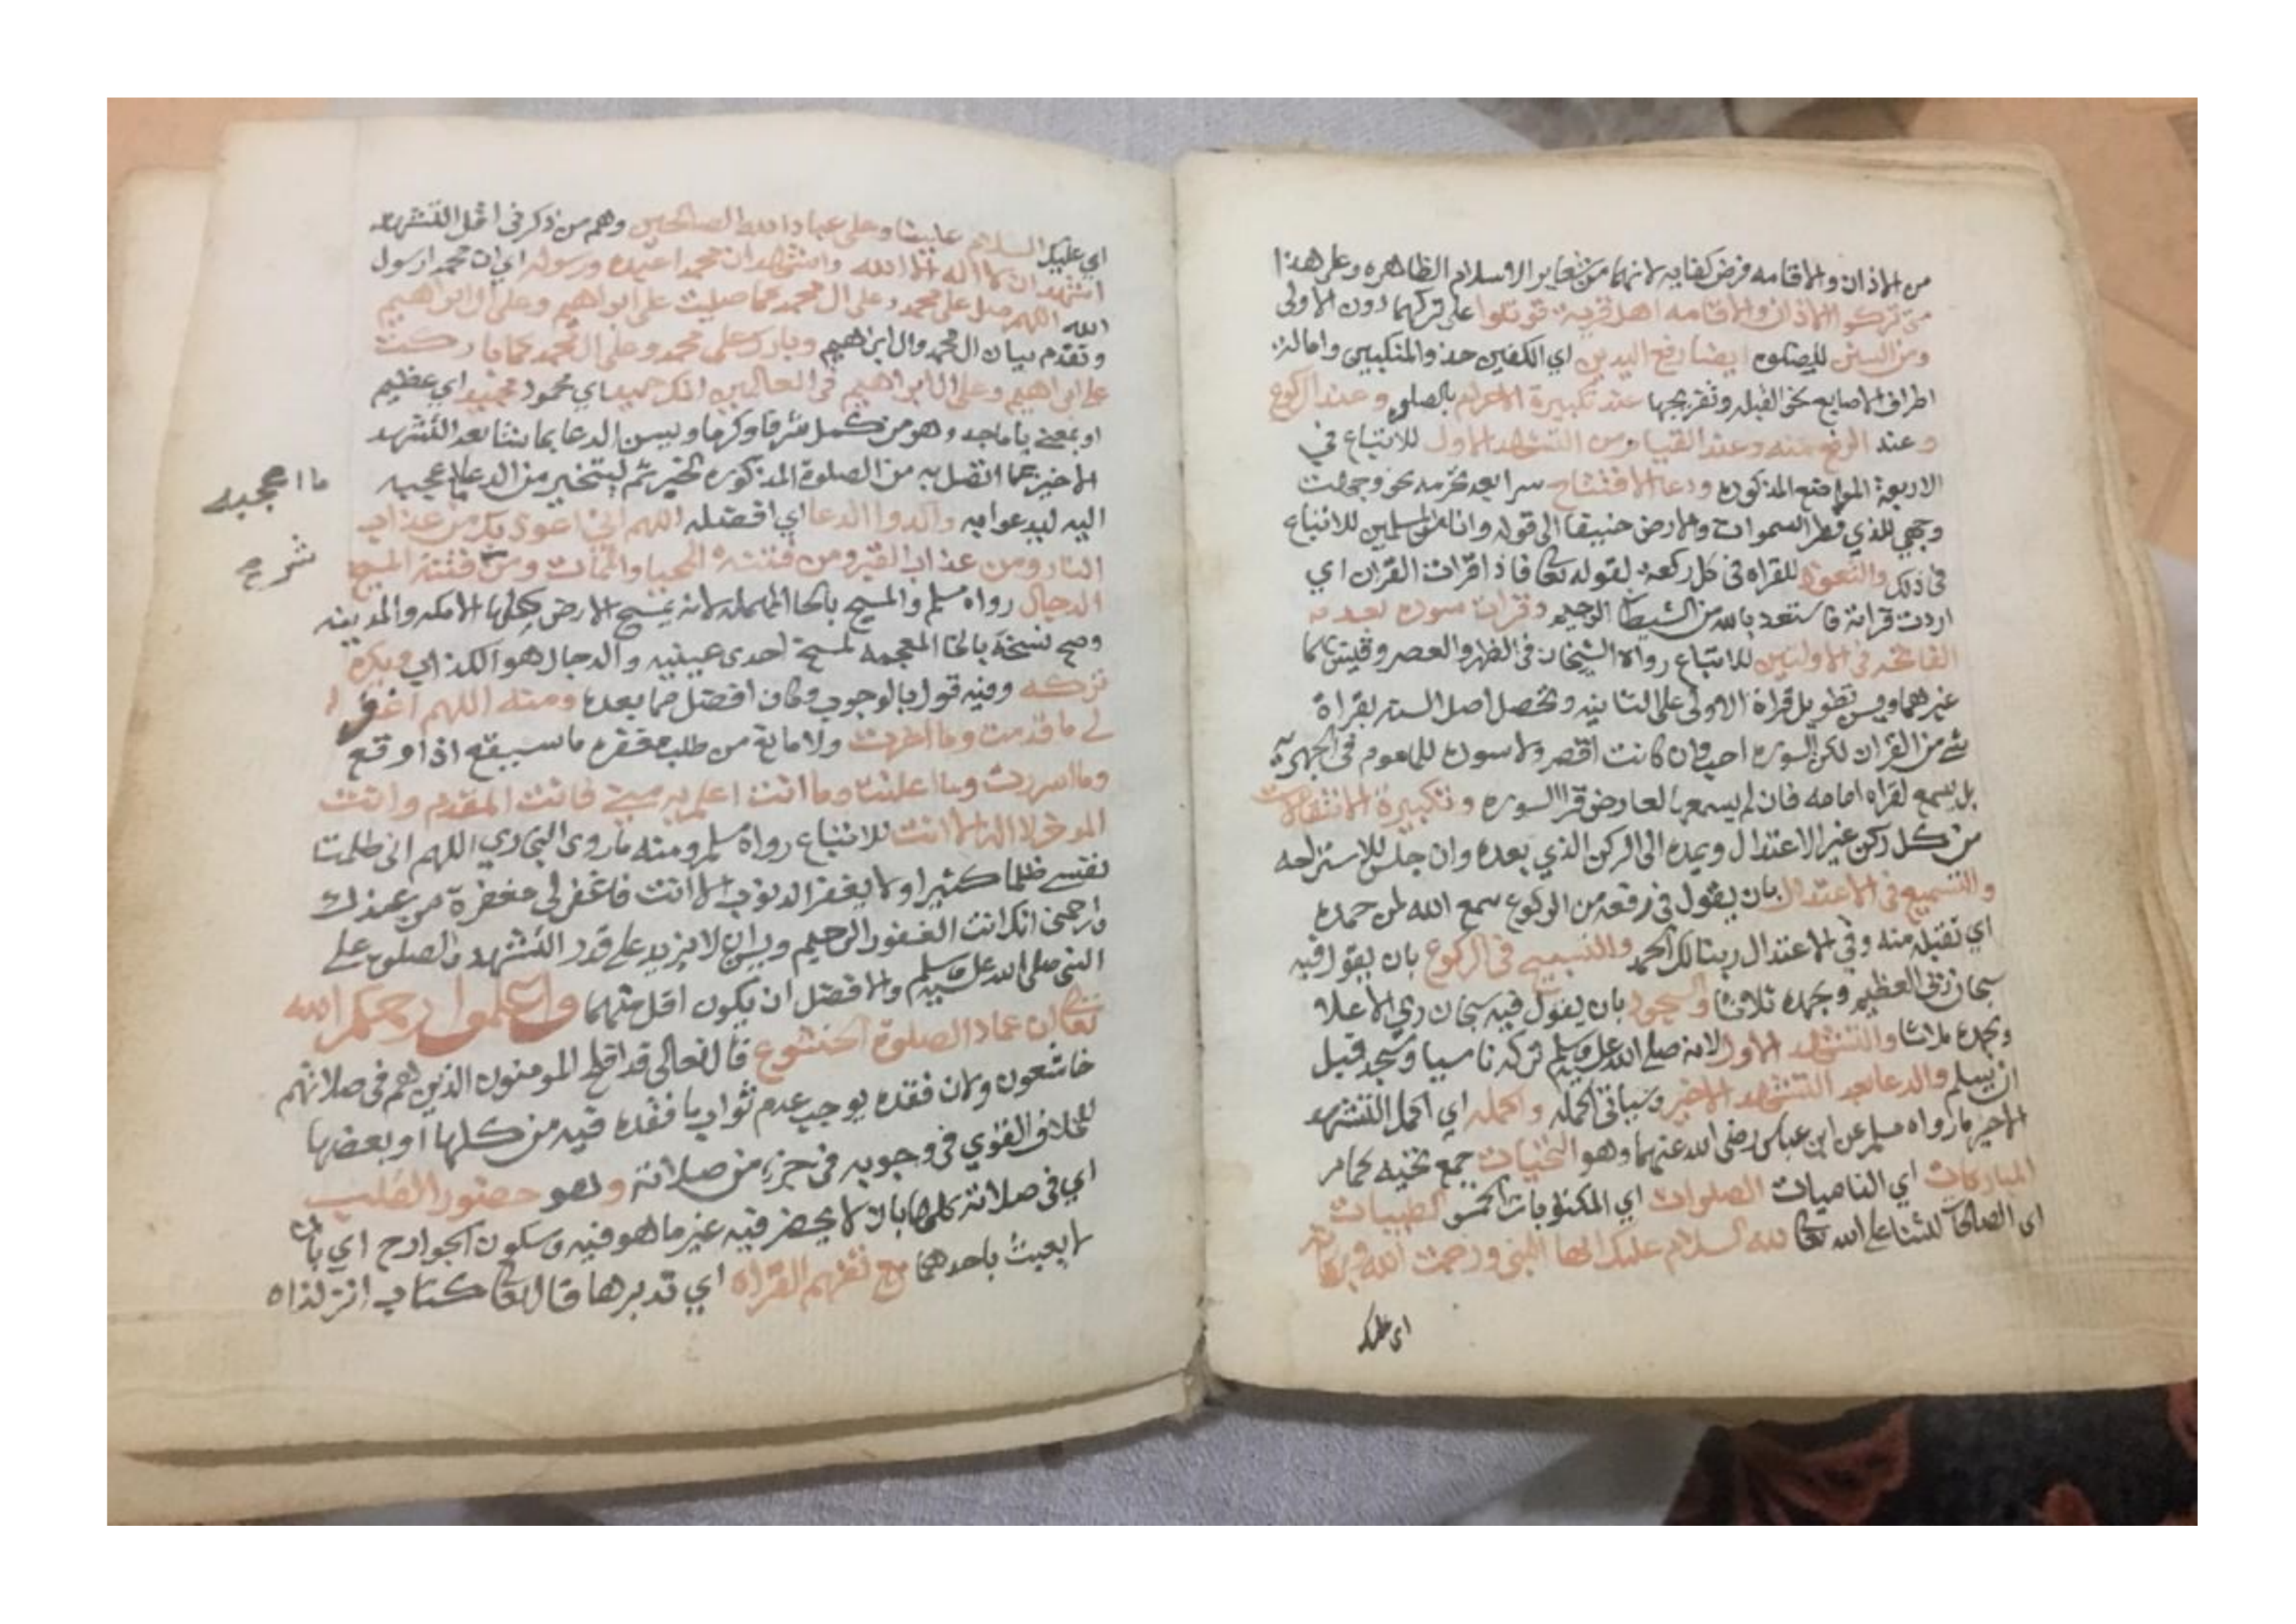 من الاذان والاقامه فرض كفايه لانهما من شعاير الاسلام الظاهره وعلى هذا
متى تركوا الاذان والاقامه اهل قرية قوتلوا على تركهما دون الاولى
ومن السنن للصلوه ايضا رفع اليدين اي الكفين حذو المنكبين وامالة
اطراف الاصابع نحو القبله وتفريجها عند تكبيرة الاحرام بالصلوه وعند الركوع
وعند الرفع منه وعند القيام من التشهد الاول للاتباع في
الاربعة المواضع المذكوره ودعا الافتتاح سرا بعد تحرمه نحو وجهت
وجهي للذي فطر السموات والارض حنيفا الى قوله وانا من المسلمين للاتباع
في ذلك والتعوذ للقراه في كل ركعة لقوله تعالى فاذا قرات القران اي
اردت قراته فاستعذ بالله من الشيطان الرجيم وقرات سوره بعد
الفاتحه في الاوليين للاتباع رواه الشيخان في الظهر والعصر وقيس بهما
غيرهما ويسن تطويل قراة الاولى على الثانيه وتحصل اصل السنه بقراة
شي من القران لكن السوره احب وان كانت اقصر ولا سورة للماموم في الجهرية
بل يسمع لقراه امامه فان لم يسمعها لعارض قرا السوره وتكبيرة الانتقالات
من كل ركن غير الاعتدال ويمده الى الركن الذي بعده وان جلس للاستراحه
والتسميع في الاعتدال بان يقول في رفعه من الركوع سمع الله لمن حمده
اي تقبله منه وفي الاعتدال ربنا لك الحمد والتسبيح في الركوع بان يقول فيه
سبحان ربي العظيم وبحمده ثلاثا والسجود بان يقول فيه سبحان ربي الاعلا
وبحمده ثلاثا والتشهد الاول لانه صلى الله عليه وسلم تركه ناسيا وسجد قبل
ان يسلم والدعا بعد التشهد الاخير وسياتي اكمله واكمله اي اكمل التشهد
الاخير ما رواه مسلم عن ابن عباس رضي الله عنهما وهو التحيات جمع تحيه كما مر
المباركات اي الناميات الصلوات اي المكتوبات الخمس الطيبات
اي الصالحات للثنا على الله تعالى لله السلام عليك ايها النبي ورحمت الله وبركاته
اي عليك
اي عليك السلام علينا وعلى عباد الله الصالحين وهم من ذكر في اقل التشهد
اشهد ان لا اله الا الله واشهد ان محمدا عبده ورسوله اي ان محمدا رسول
الله اللهم صل على محمد وعلى ال محمد كما صليت على ابراهيم وعلى ال ابراهيم
وتقدم بيان ال محمد وال ابراهيم وبارك على محمد وعلى ال محمد كما باركت
على ابراهيم وعلى ال ابراهيم في العالمين انك حميد اي محمود مجيد اي عظيم
او بمعنى ماجد وهو من كمل شرفا وكرما ويسن الدعا بما شا بعد التشهد
الاخير بما اتصل به من الصلوة المذكوره لخبر ثم ليتخير من الدعا ما اعجبه
ما اعجبه
اليه ليدعوا به واكدوا الدعا اي افضله اللهم اني اعوذ بك من عذاب
شرح
النار ومن عذاب القبر ومن فتنة المحيا والممات ومن فتنة المسيح
الدجال رواه مسلم والمسيح بالحا المهمله لانه يمسح الارض كلها الا مكه والمدينه
وصح نسخة بالخا المعجمه لمسح احدى عينيه والدجال هو الكذاب ويكره
تركه وفيه قول بالوجوب وكان افضل مما بعده ومنه اللهم اغفر
لي ما قدمت وما اخرت ولا مانع من طلب مغفره ما سيقع اذا وقع
وما اسررت وما اعلنت وما انت اعلم به مني فانت المقدم وانت
الموخر لا اله الا انت للاتباع رواه مسلم ومنه ما روى البخاري اللهم اني ظلمت
نفسي ظلما كثيرا ولا يغفر الذنوب الا انت فاغفر لي مغفرة من عندك
وارحمني انك انت الغفور الرحيم ويسن ان لا يزيد على قدر التشهد والصلوه على
النبي صلى الله عليه وسلم والافضل ان يكون اقل منهما واعلموا رحمكم الله
تعالى ان عماد الصلوة الخشوع قال تعالى قد افلح المومنون الذين هم في صلاتهم
خاشعون ولان فقده يوجب عدم ثواب ما فقده فيه من كلها او بعضها
للخلاف القوي في وجوبه في جزء من صلاته وهو حضور القلب
اي في صلاته كلها بان لا يحضر فيه غير ما هو فيه وسكون الجوارح اي بان
لا يعبث باحدهما مع تفهم القراه اي تدبرها قال تعالى كتاب انزلناه